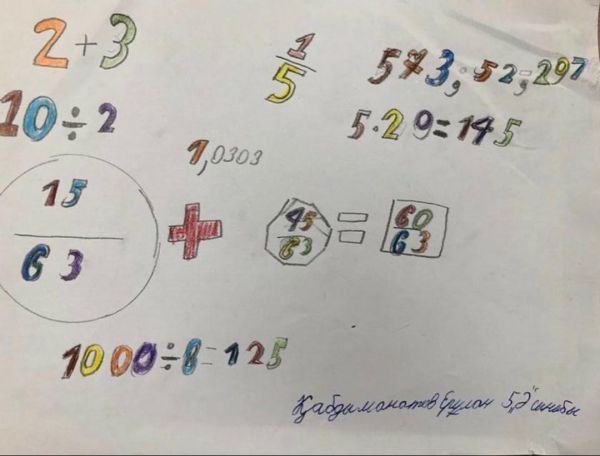 2+3
1/5
573; 52; 297
10÷2
5·29=145
1,0303
15/63 + 45/63 = 60/63
1000÷8=125
Қабдыманатов Ерулан 5„Ә" сыныбы